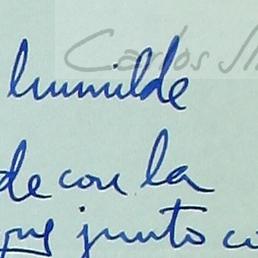 Carlos
humilde
de con la
que junto co